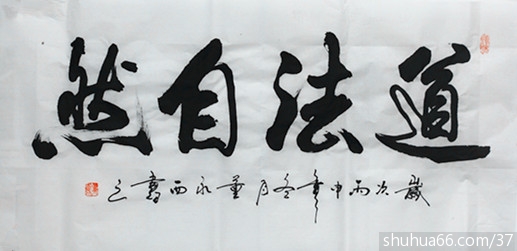 道法自然
歲次丙申年冬月董永西書之
shuhua66.com/37